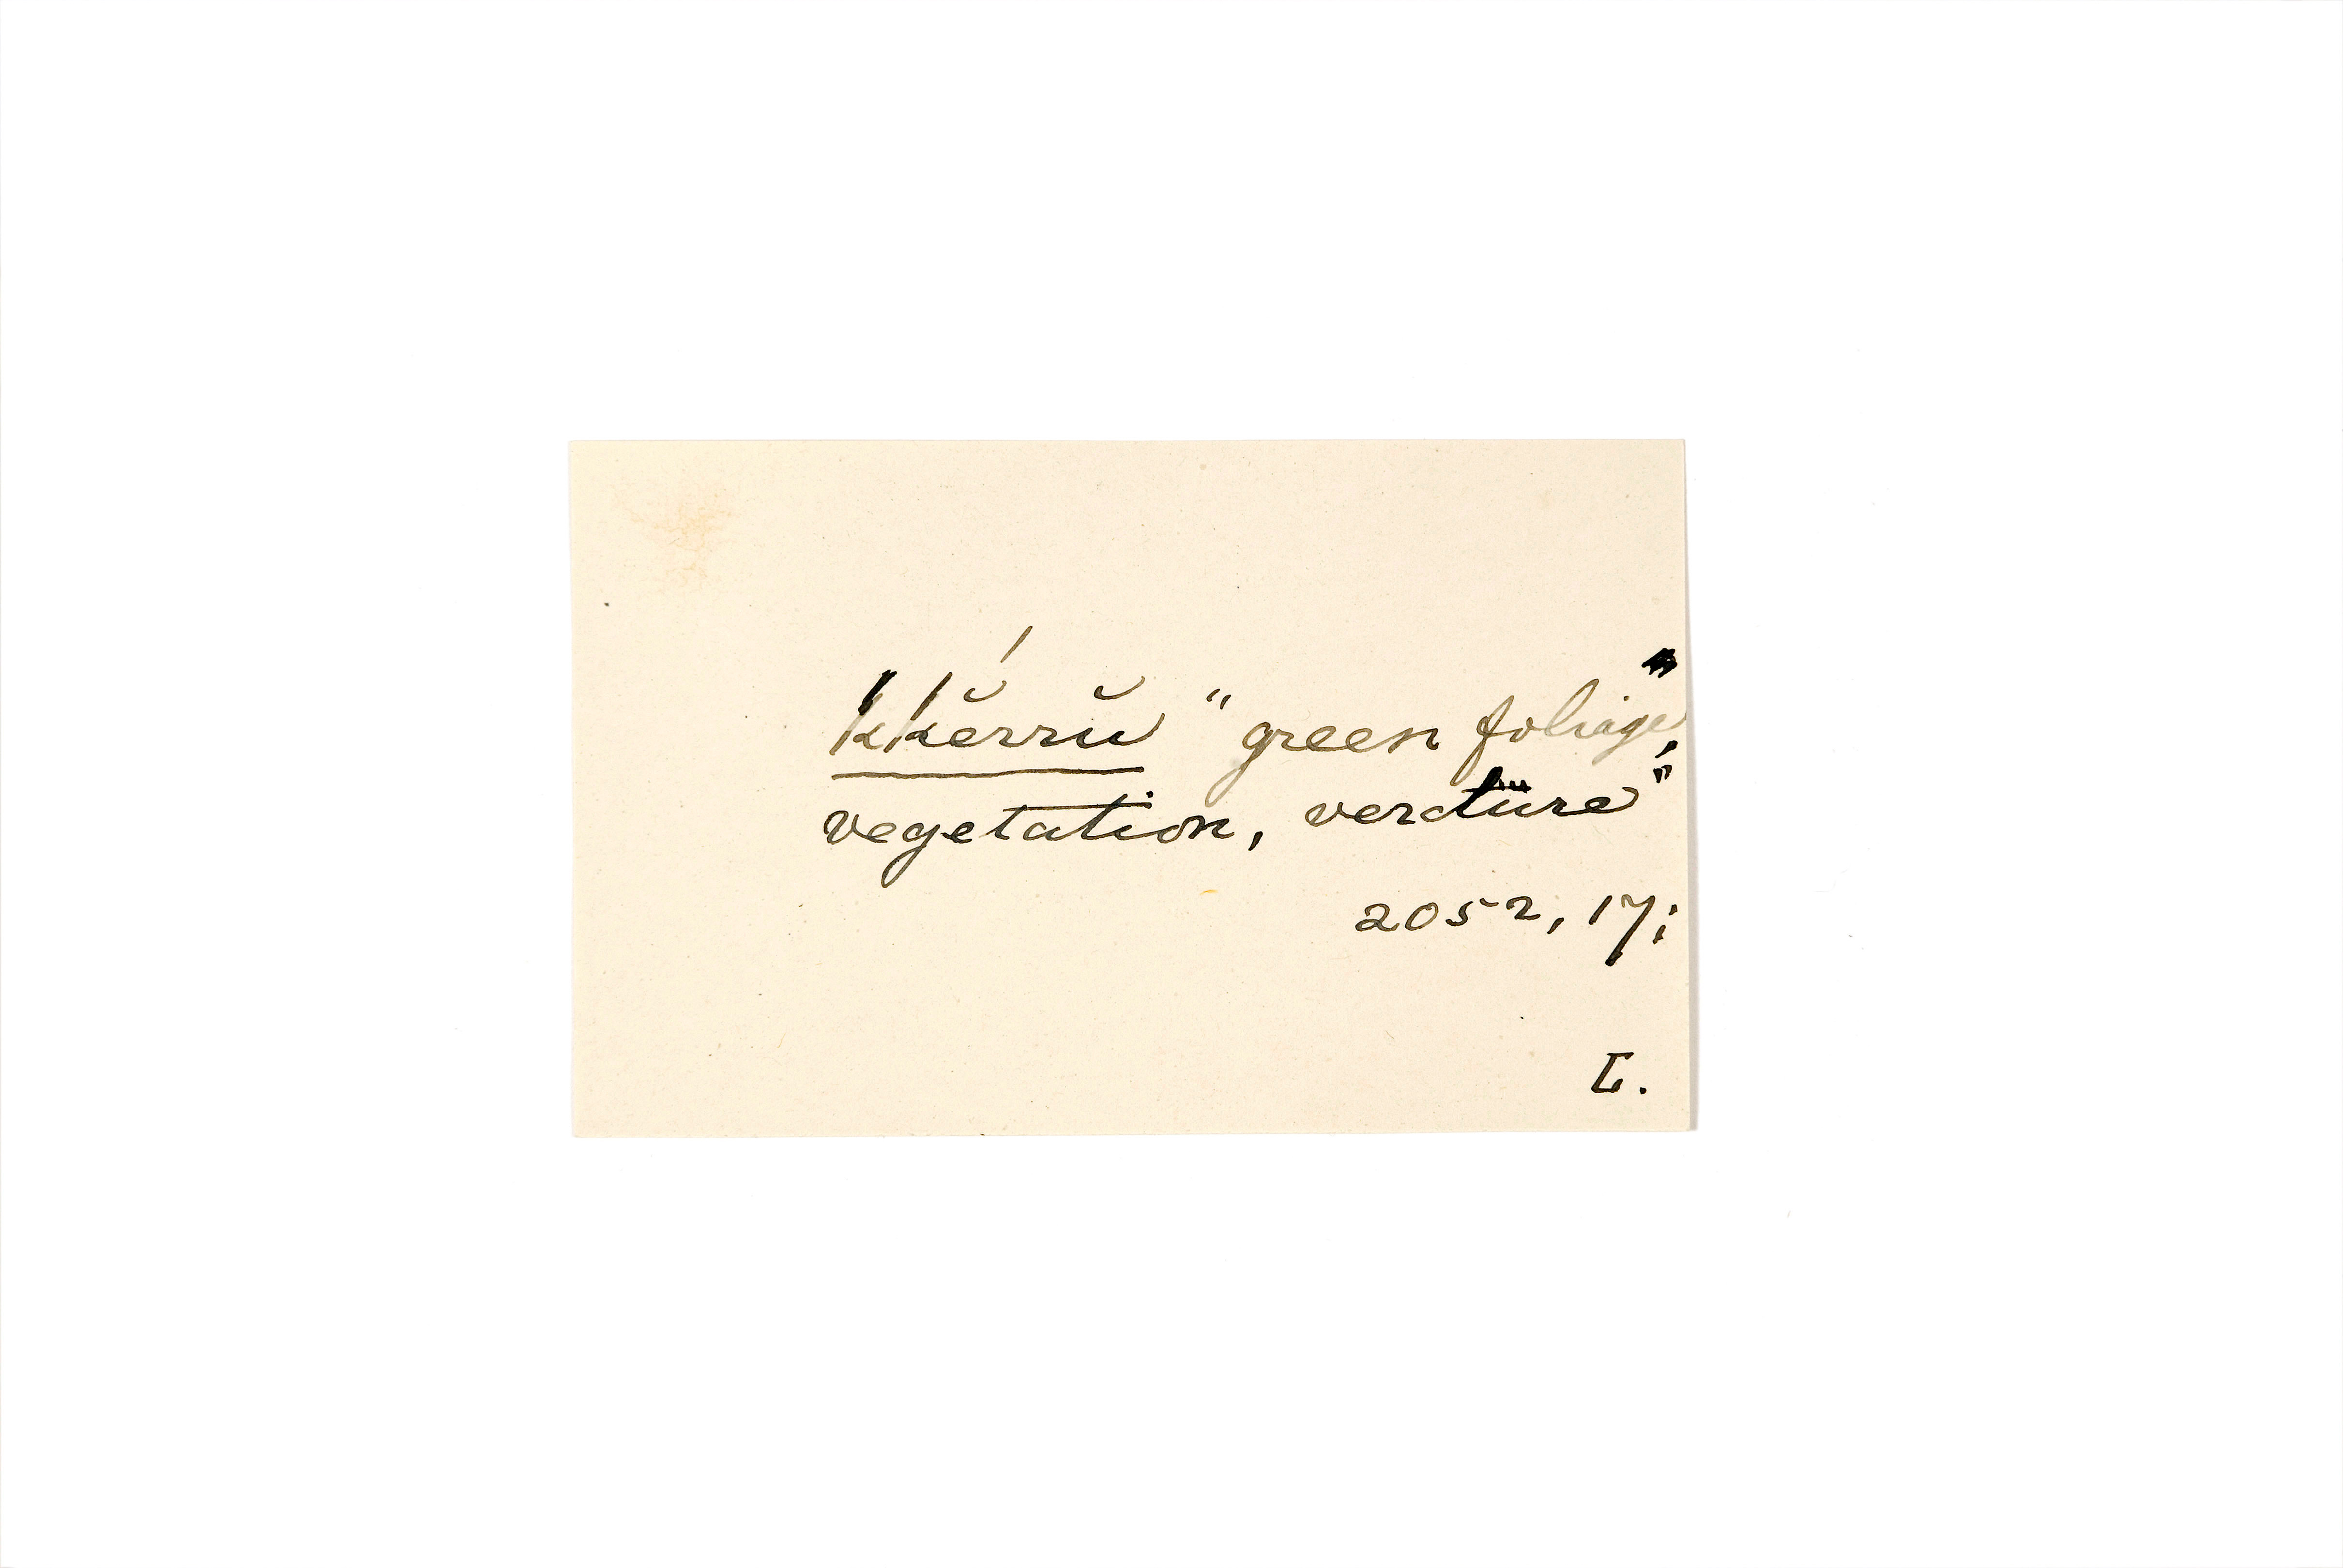 kkĕ́rrŭ "green foliage,
vegetation, verdure"
2052, 17;
L.